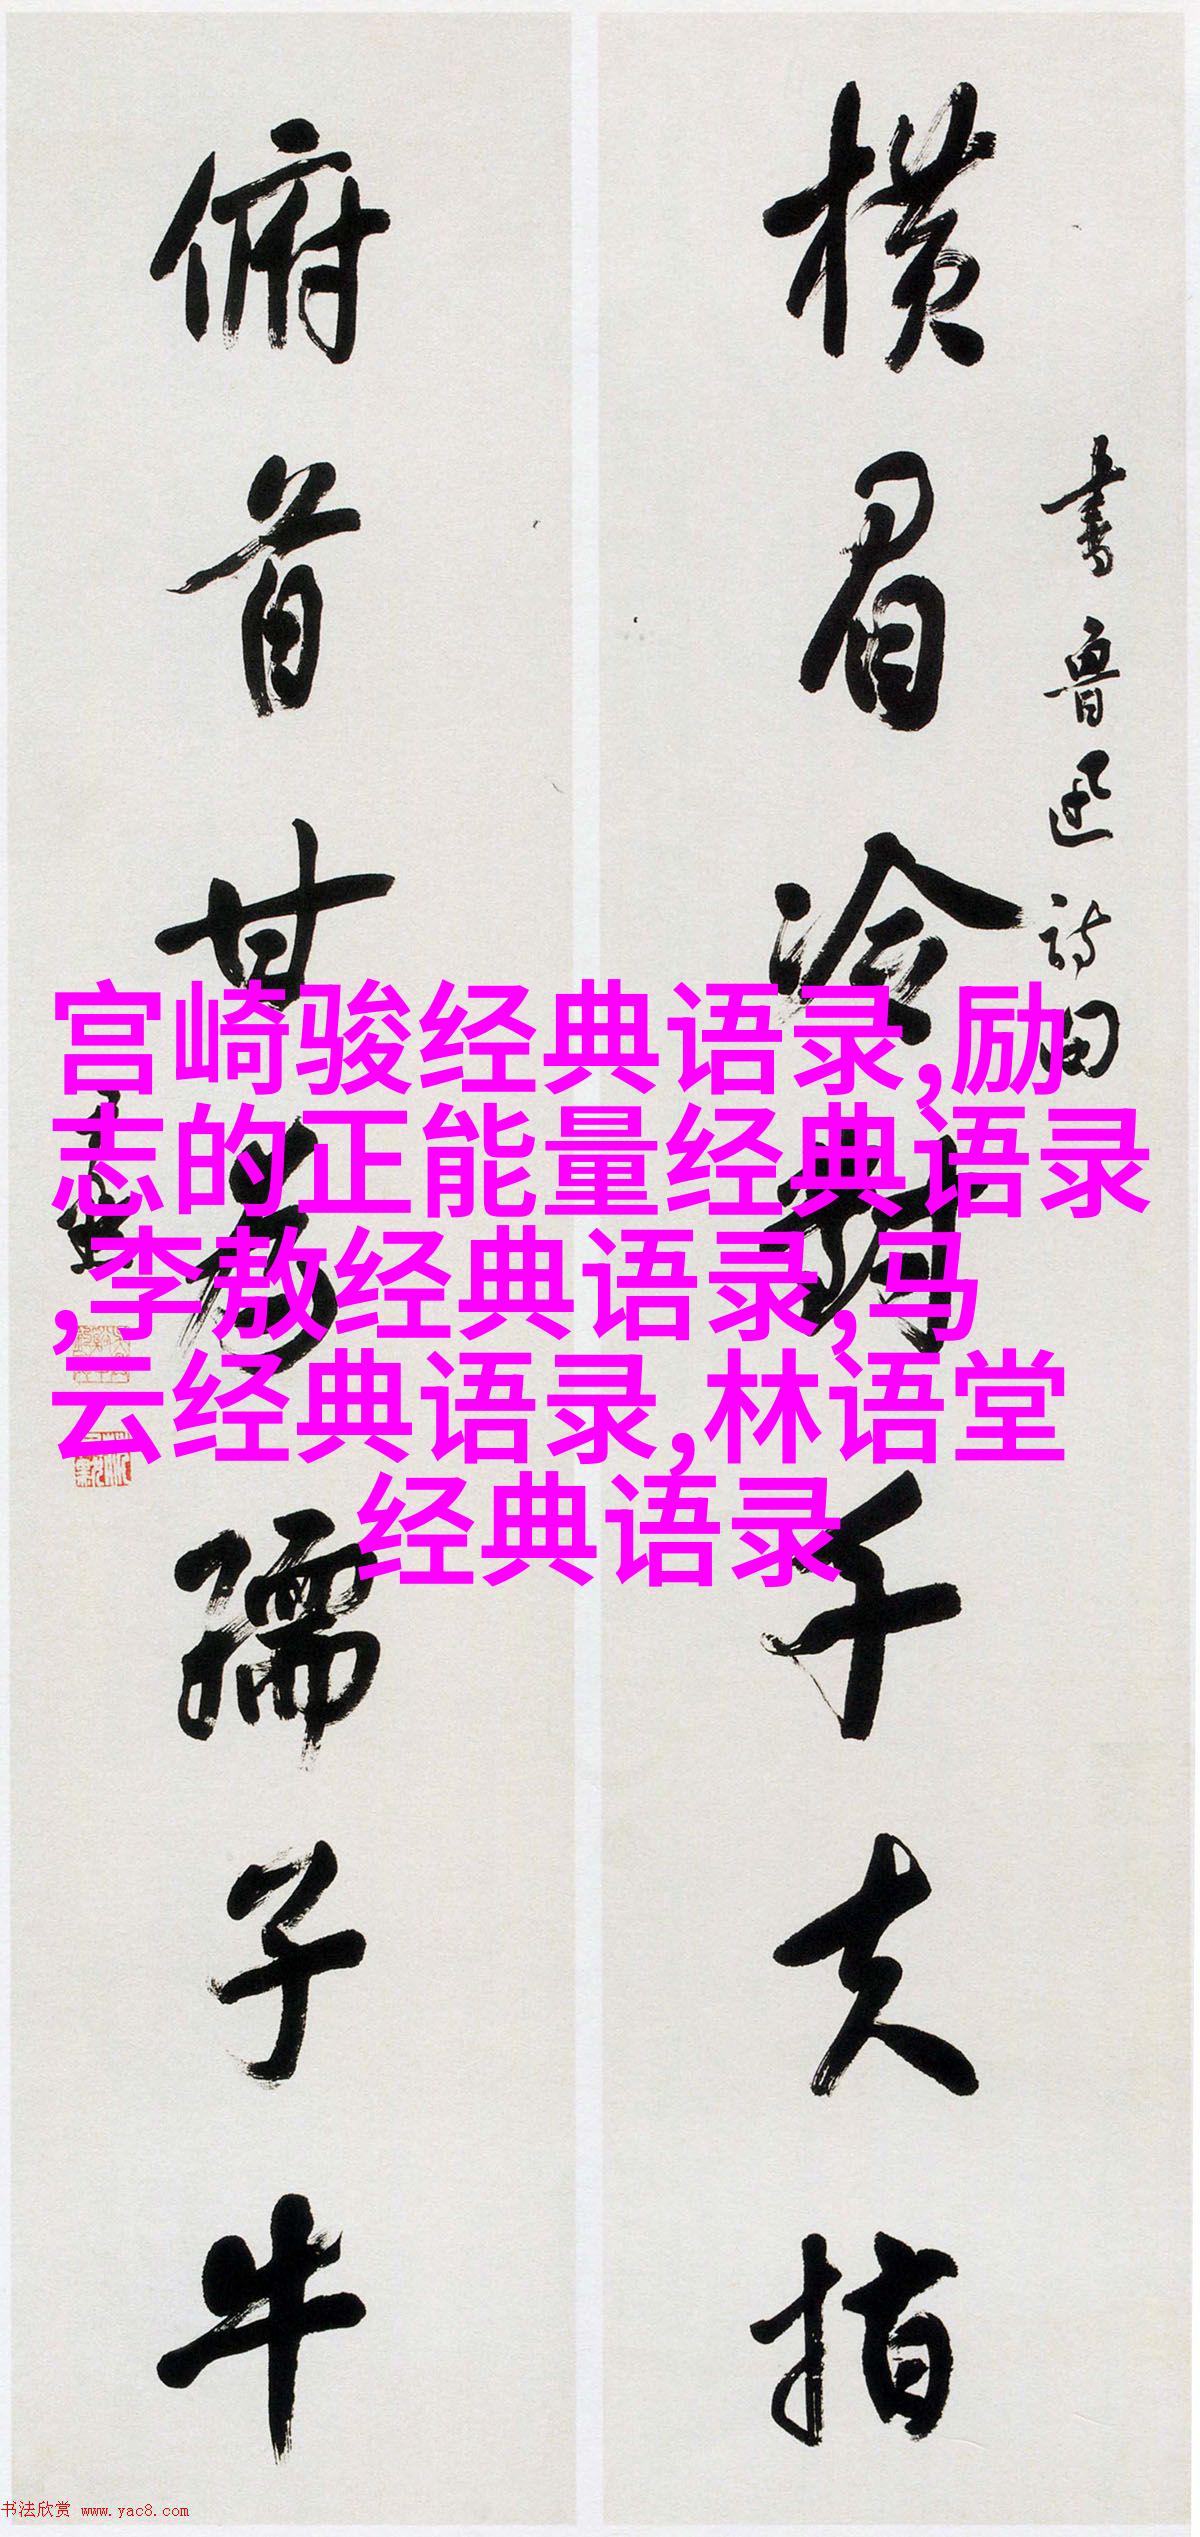 横眉冷对千夫指
书鲁迅诗句
俯首甘为孺子牛
宫崎骏经典语录,励
志的正能量经典语录
,李敖经典语录,马
云经典语录,林语堂
经典语录
书法欣赏 www.yac8.com